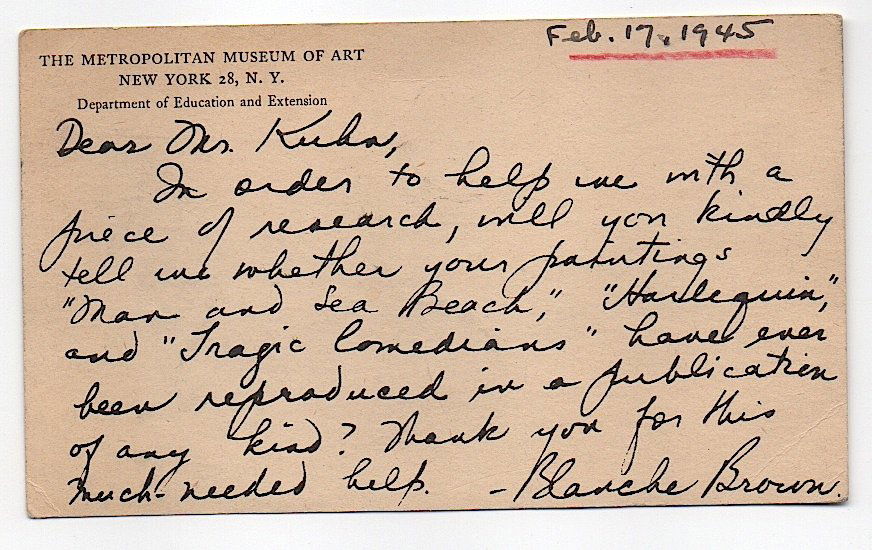 THE METROPOLITAN MUSEUM OF ART
NEW YORK 28, N. Y.
Department of Education and Extension
Feb. 17, 1945
Dear Mr. Kuhn,
In order to help me with a
piece of research, will you kindly
tell me whether your paintings
"Man and Sea Beach," "Harlequin,"
and "Tragic Comedians" have ever
been reproduced in a publication
of any kind? Thank you for this
much-needed help. - Blanche Brown.